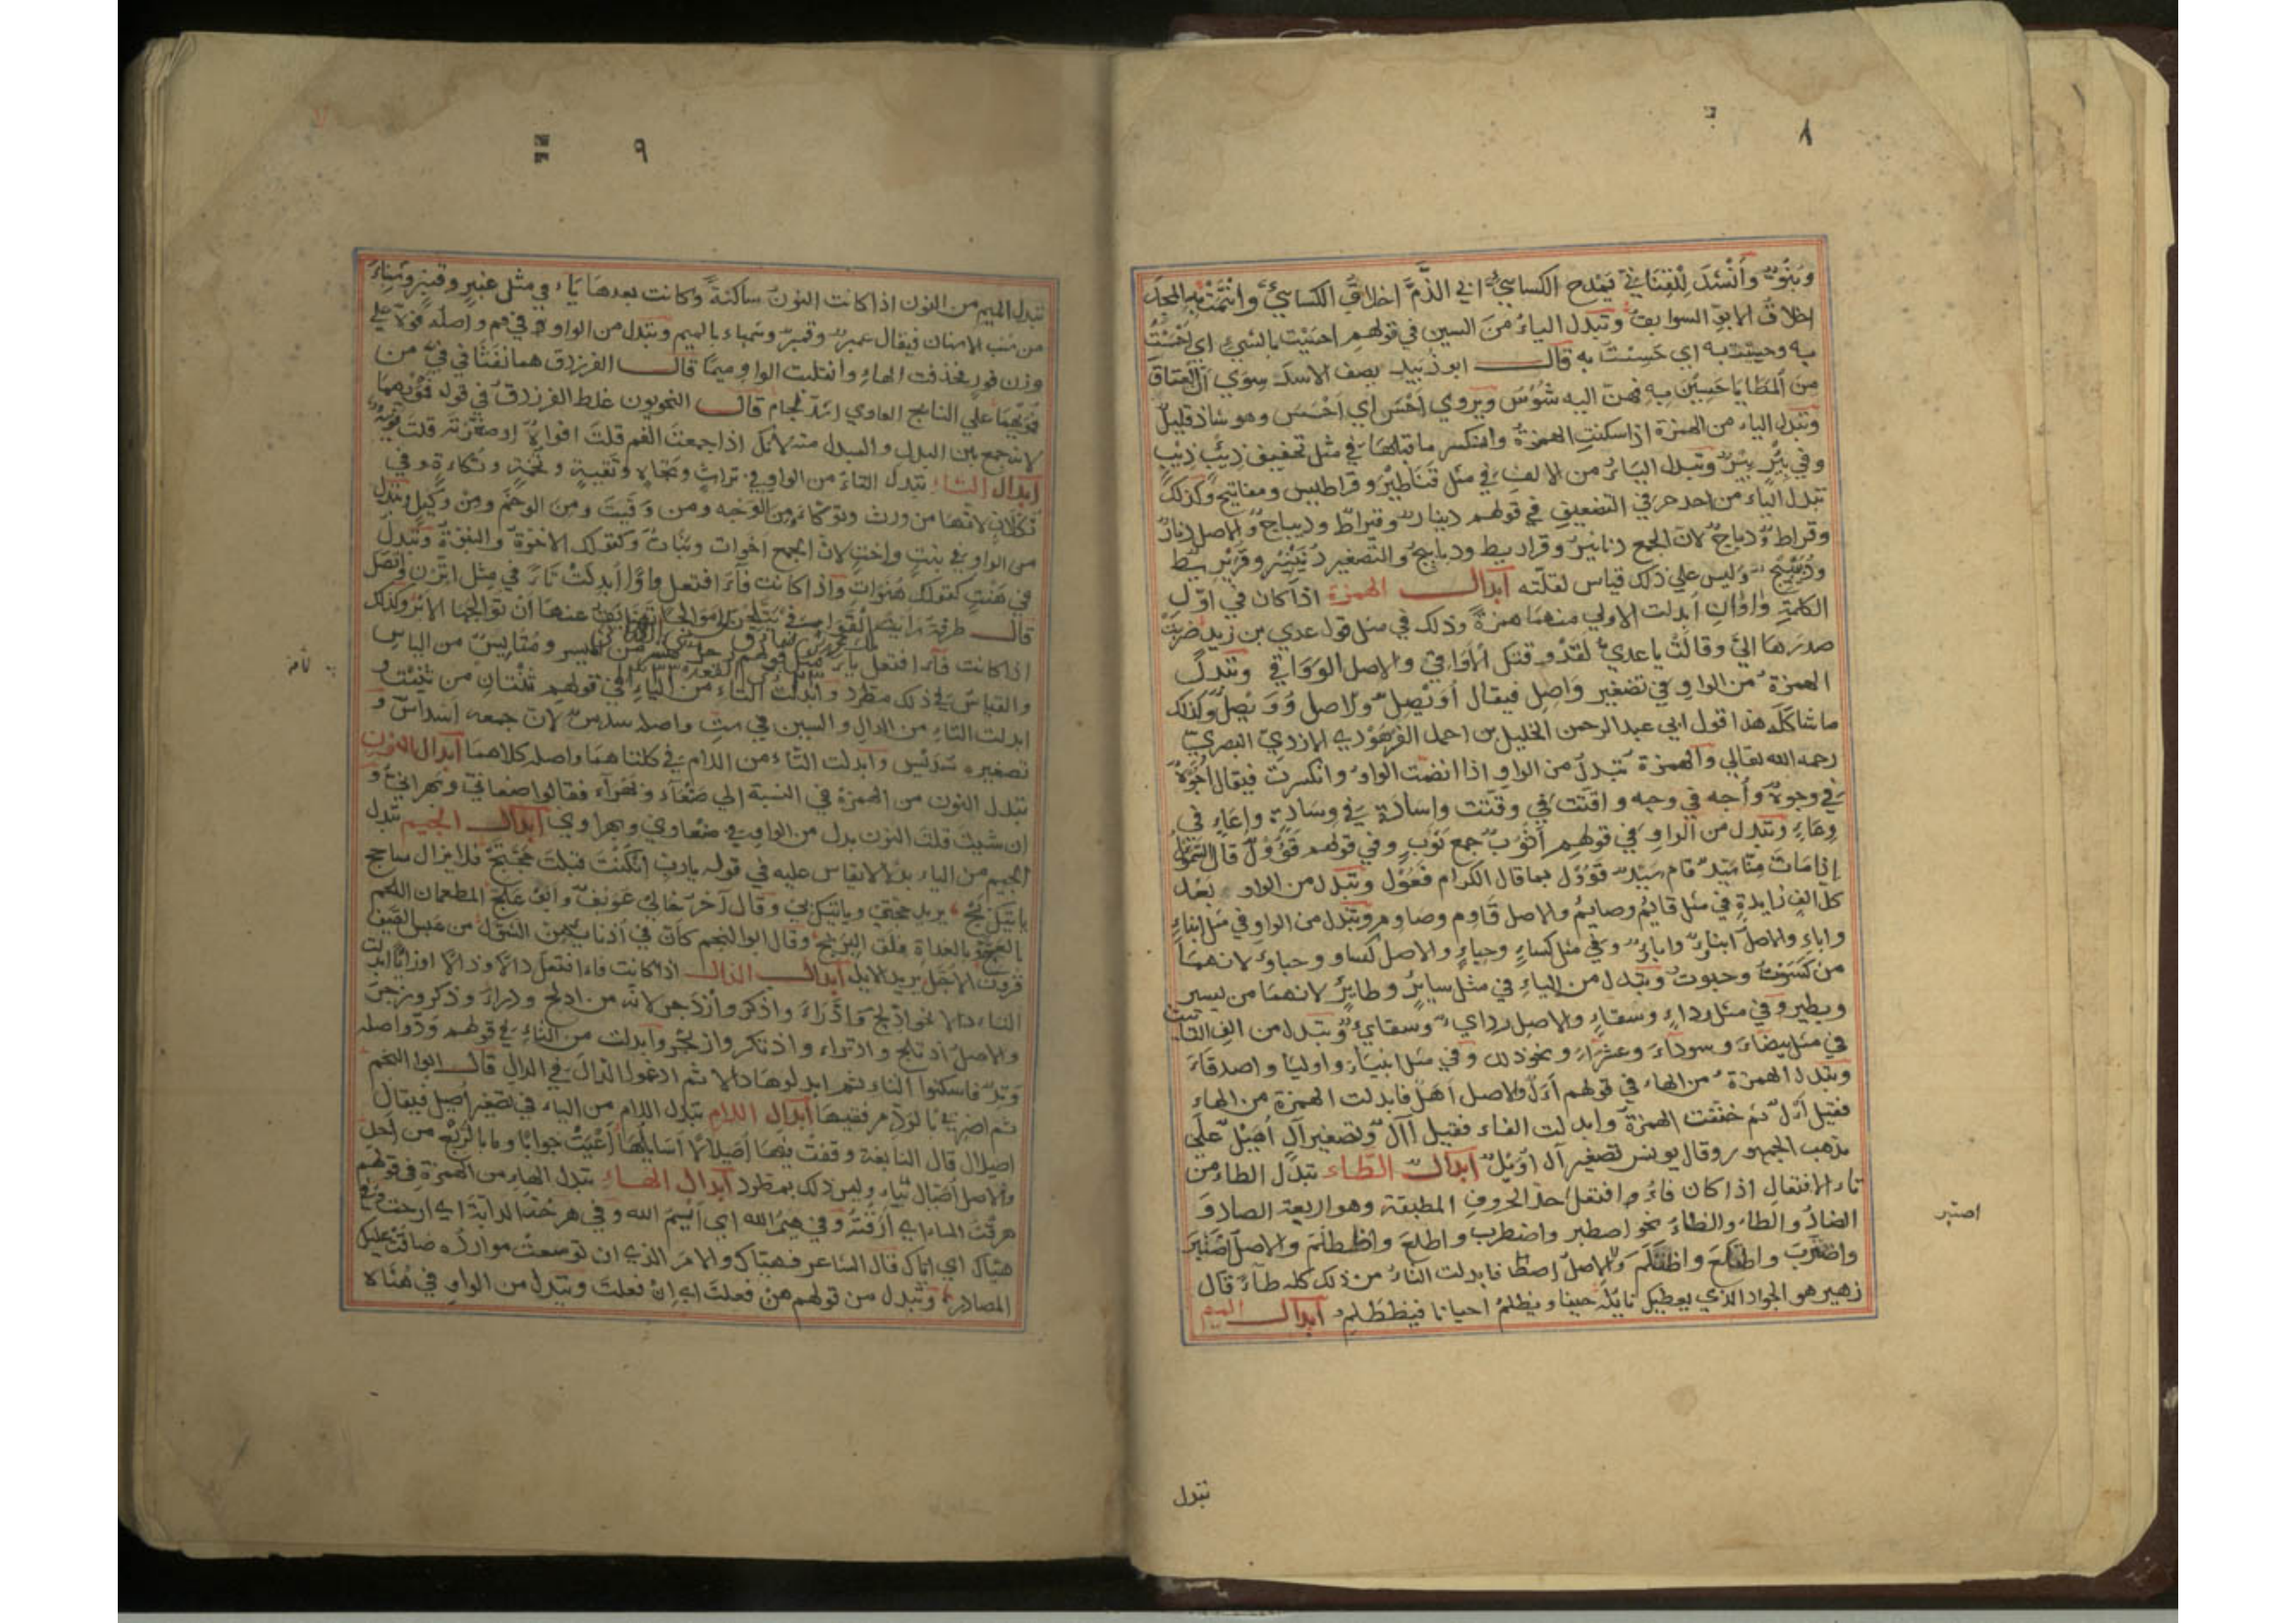 ٨
وبنوّة وأنشد للقناني يمدح الكسائي ابي الذم اخلاق الكسائي وانتمت به المجد
اخلاق الابو السوابق وتبدل الياء من السين في قولهم احسيت بالشيء اي احسست
به وحسيت به اي حسست به قال ابو زبيد يصف الاسد سوي ان العتاق
من المطايا حسين به فهن اليه شوس ويروي احسن اي احسس وهو شاذ قليل
وتبدل الياء من الهمزة اذا سكنت الهمزة وانكسر ما قبلها في مثل تخفيف ذئب ذيب
وفي بئر بير وتبدل الياء من الالف في مثل قناطير وقراطيس ومفاتيح وكذلك
تبدل الياء من احد حرفي التضعيف في قولهم دينار وقيراط وديباج والاصل دنار
وقراط ودباج لان الجمع دنانير وقراريط ودبابيج والتصغير دنينير وقريريط
ودبيبيج وليس علي ذلك قياس لقلته ابدال الهمزة اذا كان في اول
الكلمة واوان ابدلت الاولي منهما همزة وذلك في مثل قول عدي بن زيد ضربت
صدرها الي وقالت يا عدي لقد وقتك الاواقي والاصل الوواقي وتبدل
الهمزة من الواو في تصغير واصل فيقال اويصل والاصل وويصل وكذلك
ما شاكله هذا قول ابي عبد الرحمن الخليل بن احمد الفرهودي الازدي البصري
رحمه الله تعالي والهمزة تبدل من الواو اذا انضمت الواو وانكسرت فيقال اجوه
في وجوه وأجه في وجه واقتت في وقتت واسادة في وسادة واعاء في
وعاء وتبدل من الواو في قولهم اثوب جمع ثوب وفي قولهم قؤول قال
اذا مات منا سيد قام سيد قؤول بما قال الكرام فعول وتبدل من الواو بعد
كل الف زايدة في مثل قايم وصايم والاصل قاوم وصاوم وتبدل من الواو في مثل ابناء
واباء والاصل ابناو واباو وفي مثل كساء وحباء والاصل كساو وحباو لانهما
من كسوت وحبوت وتبدل من الياء في مثل ساير وطاير لانهما من يسير
ويطير وفي مثل رداء وسقاء والاصل رداي وسقاي وتبدل من الف التانيث
في مثل بيضاء وسوداء وعشراء ونحو ذلك وفي مثل انبياء واوليا واصدقاء
وتبدل الهمزة من الهاء في قولهم أأل والاصل اهل فابدلت الهمزة من الهاء
فقيل أأل ثم خففت الهمزة وابدلت الفاء فقيل اآل وتصغير آل أهيل علي
مذهب الجمهور وقال يونس تصغير آل اويل ابدال الطاء تبدل الطاء من
تاء الافتعال اذا كان فاء افتعل احد الحروف المطبقة وهو اربعة الصاد و
الضاد والطاء والظاء نحو اصطبر واضطرب واطلع واظطلم والاصل اصتبر
واضترب واطتلع واظتلم والاصل فابدلت التاء من ذلك كله طاء قال
زهير هو الجواد الذي يعطيك نايله عفوا ويظلم احيانا فيظطلم ابدال الميم
اصتبر
تبدل
٩
تبدل الميم من النون اذا كانت النون ساكنة وكانت بعدها باء في مثل عنبر وقنبر وشنباء
من شنب الاسنان فيقال عمبر وقمبر وشمباء بالميم وتبدل من الواو في فم واصله فوه علي
وزن فور فحذفت الهاء وانقلبت الواو ميما قال الفرزدق هما نفثا في في من
فمويهما علي النابح العاوي اشد لجام قال النحويون غلط الفرزدق في قوله فمويهما
لانه جمع بين البدل والمبدل منه لانك اذا جمعت الفم قلت افواه او صغرته قلت فويه
ابدال التاء تبدل التاء من الواو في تراث وتجاه وتقية وتخمة وتكاءة وفي
تكلان لانها من ورث وتوكات ومن الوجه ومن وقيت ومن الوخم ومن وكيل وتبدل
من الواو في بنت واخت لان الجمع اخوات وبنات وكقولك الاخوة والبنوة وتبدل
في هنت كقولك هنوات واذا كانت فاء افتعل واوا ابدلت تاء في مثل اتزن واتصل
قال طرفة رايت القوافي يتلجن موالجا تضايق عنها ان تولجها الابر وكذلك
اذا كانت فاء افتعل ياء مثل قولهم من الميسر ومن الياس
والقياس في ذلك مطرد وابدلت التاء من الياء في قولهم ثنتان من ثنيت و
ابدلت التاء من الدال والسين في ست واصله سدس لان جمعه اسداس و
تصغيره سديس وابدلت التاء من اللام في كلتا هما واصله كلاهما ابدال النون
تبدل النون من الهمزة في النسبة الي صنعاء وبهراء فقالوا صنعاني وبهراني و
ان شيت قلت النون بدل من الواو في صنعاوي وبهراوي ابدال الجيم تبدل
الجيم من الياء بدلا لا يقاس عليه في قوله يا رب ان كنت قبلت حجتج فلا يزال شاحج
ياتيك بج يريد حجتي وياتيك بي وقال آخر خالي عويف وابو علج المطعمان اللحم
بالعشج بالغداة فلق البرنج وقال ابو النجم كان في اذنابهن الشول من عبس الصيف
قرون الاجل يريد الايل ابدال الدال اذا كانت فاء افتعل دالا او ذالا او زايا ابدلت
التاء دالا نحو ادلج وادراء واذكر وازدجر لانه من ادلج ودراء وذكر وزجر
والاصل ادتلج وادتراء واذتكر وازتجر وابدلت من التاء في قولهم ود واصله
وتد فاسكنوا التاء ثم ابدلوها دالا ثم ادغموا الدال في الدال قال ابو النجم
ابدال اللام تبدل اللام من الياء في تصغير اصيل فيقال
اصيلال قال النابغة وقفت فيها اصيلالا اسايلها أعيت جوابا وما بالربع من احد
والاصل وليس ذلك بمطرد ابدال الهاء تبدل الهاء من الهمزة في قولهم
هرقت الماء اي ارقته وفي هيم الله اي ايم الله وفي هرحت الدابة اي ارحت وفي
هياك اي اياك قال الشاعر فهياك والامر الذي ان توسعت موارده ضاقت عليك
المصادر وتبدل من قولهم هن فعلت اي ان فعلت وتبدل من الواو في هناه